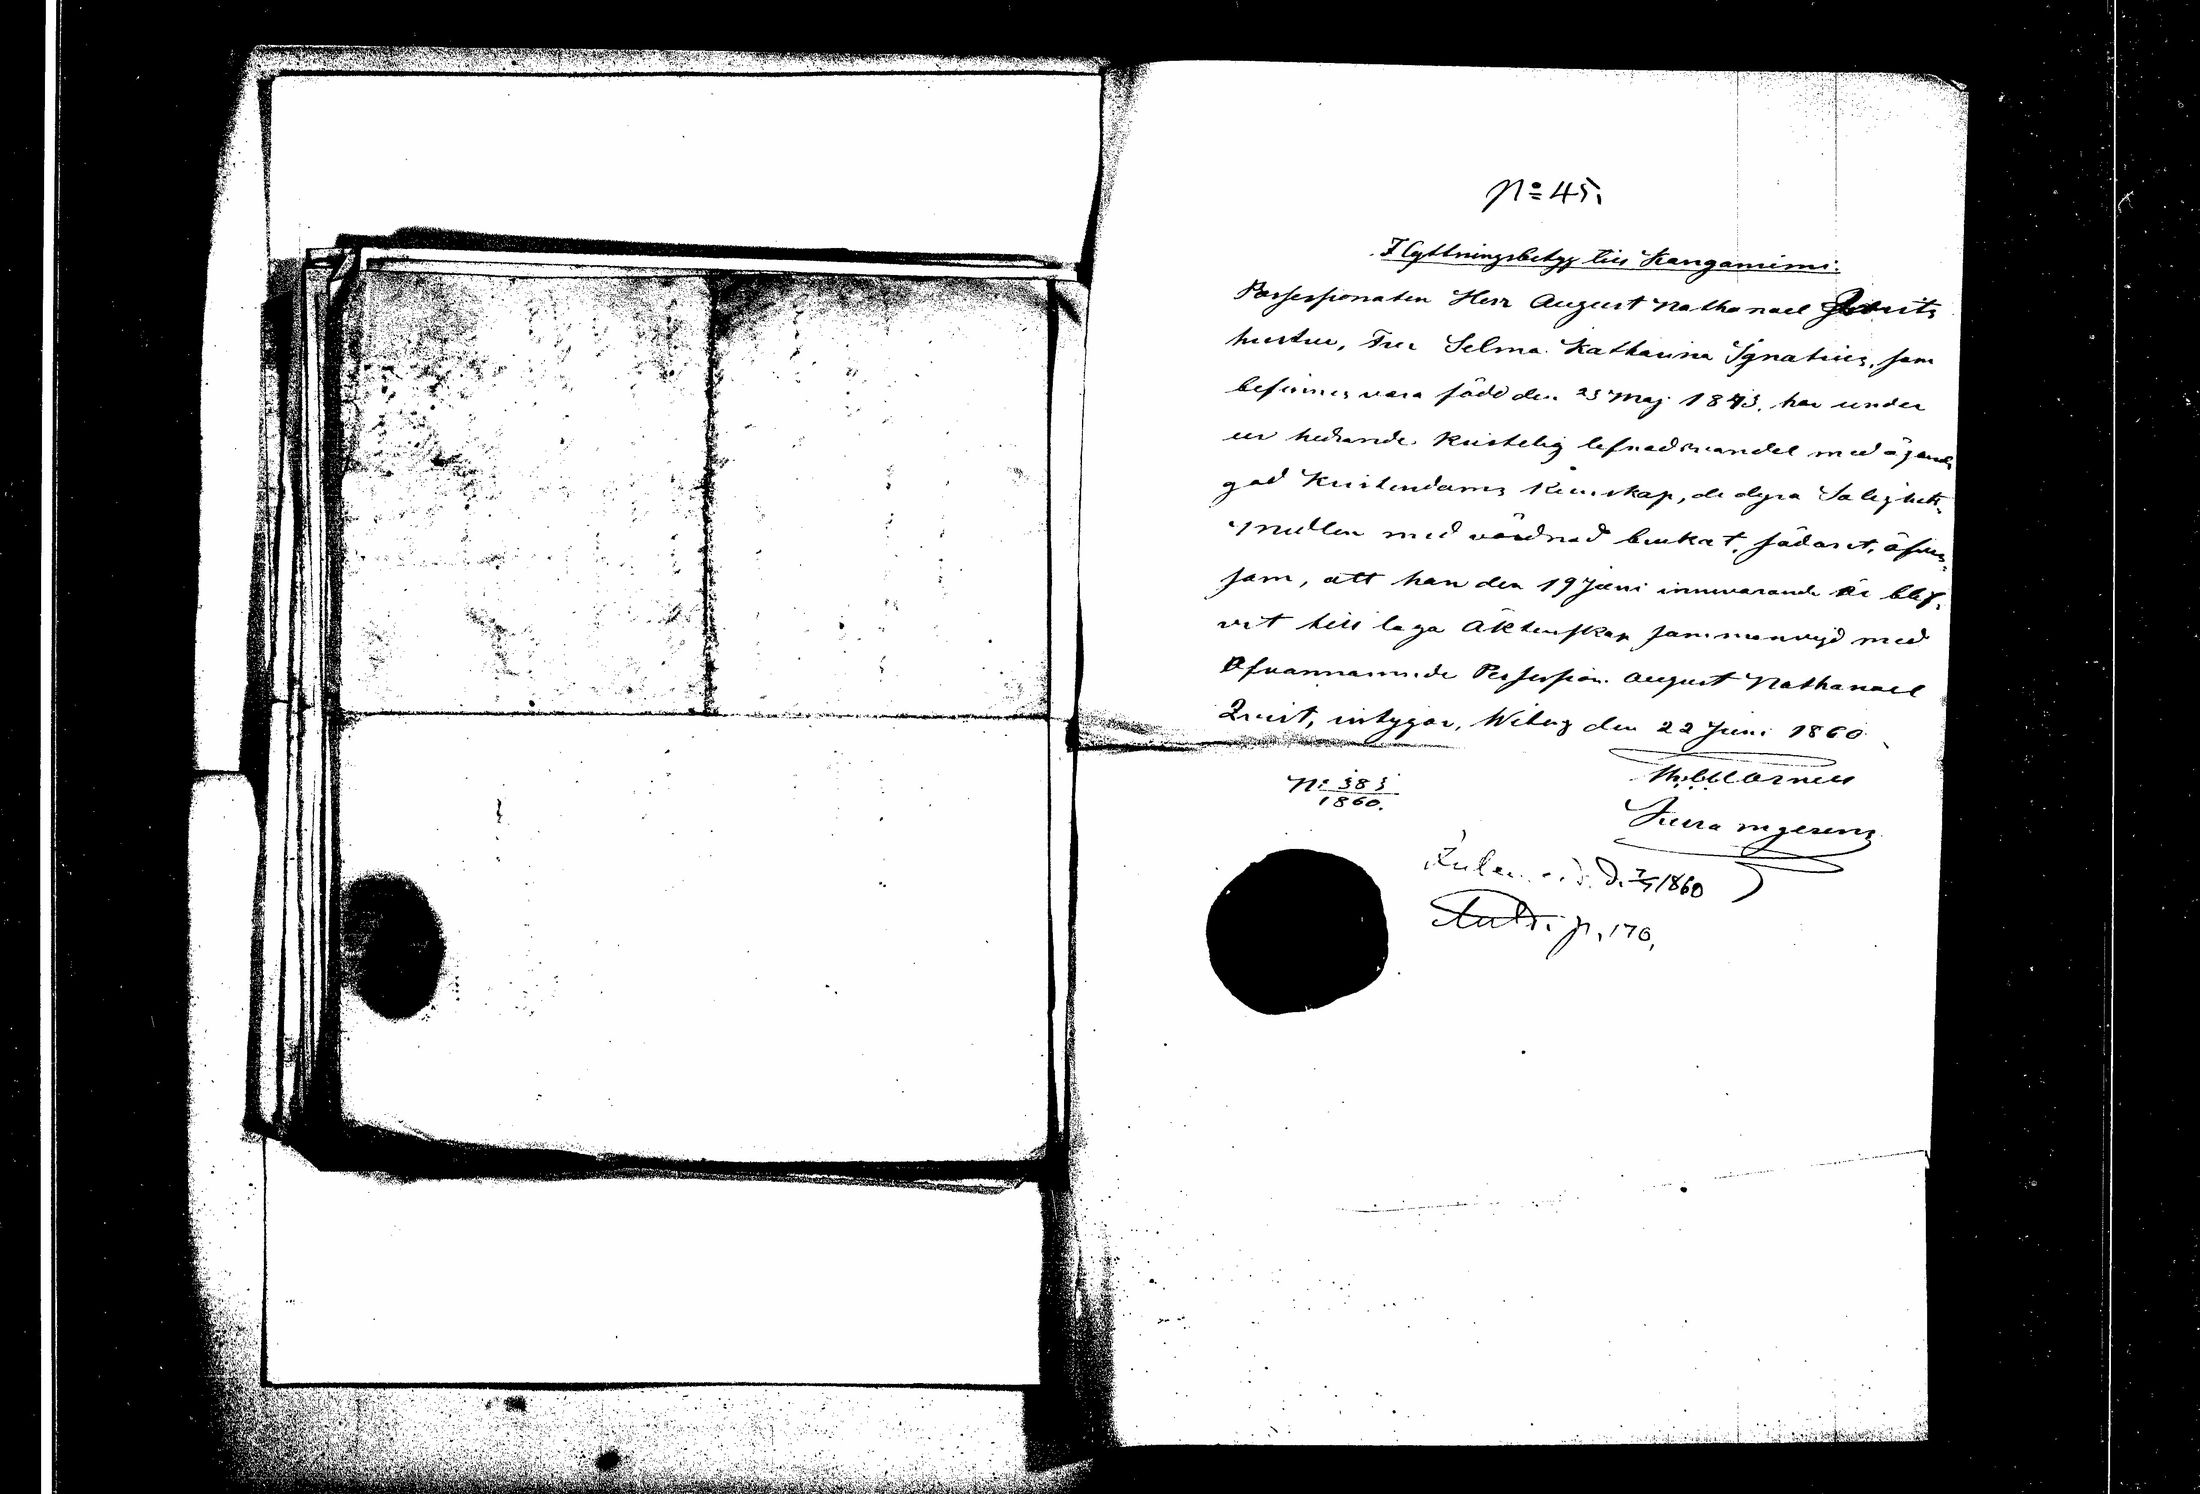 No 45.
Flyttningsbetyg till Kangasniemi.
Possessionaten Herr August Nathanael Qvists
hustru, Fru Selma Katharina Ignatius, som
befinnes vara född den 23 Maj 1843, har under
en hedrande kristelig lefnadsvandel med ägande
god Kristendoms kunskap, de dyra Salighets
medlen med vördnad brukat, sådant, äfven
som, att hon den 19 Juni innevarande år blif-
vit till laga Äktenskap sammanvigd med
Ofvannämnde Possession. August Nathanael
Qvist, intygar, Wiborg den 22 Juni 1860
No 383
1860.
d. 7/7 1860
p. 170,